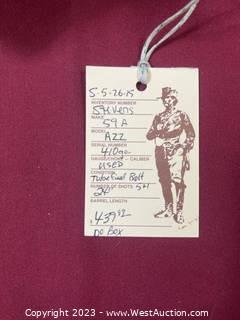 S-5-26-15
INVENTORY NUMBER
Stevens
MAKE
59A
MODEL
AZZ
SERIAL NUMBER
410ga
GAUGE/CHOKE - CALIBER
USED
CONDITION
Tubular Bolt
NUMBER OF SHOTS 5H
24"
BARREL LENGTH
439 92
No Box
Copyright 2023 - www.WestAuction.com